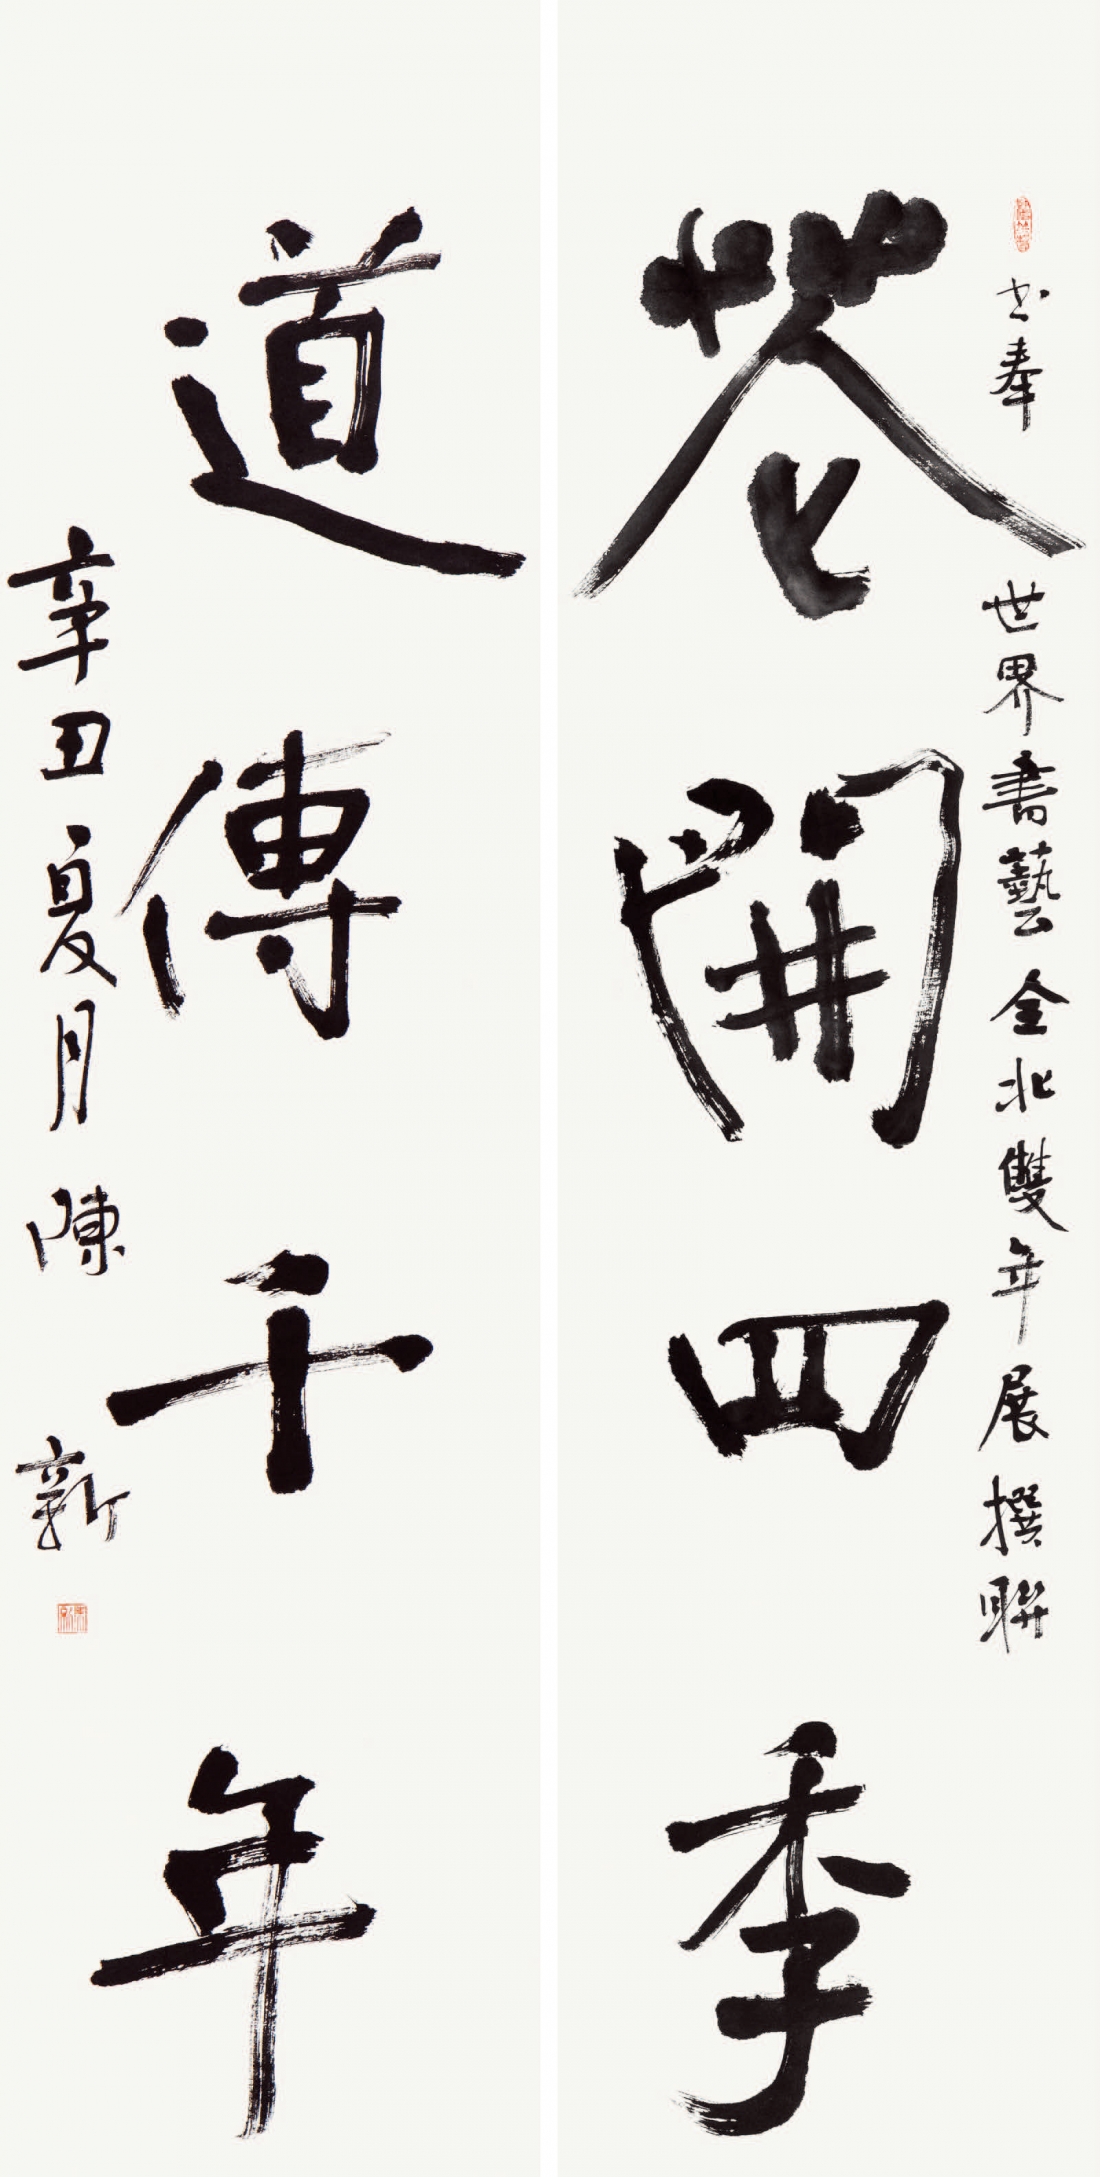 花開四季
書奉世界書藝全北雙年展撰聯
道傳千年
辛丑夏月陳新